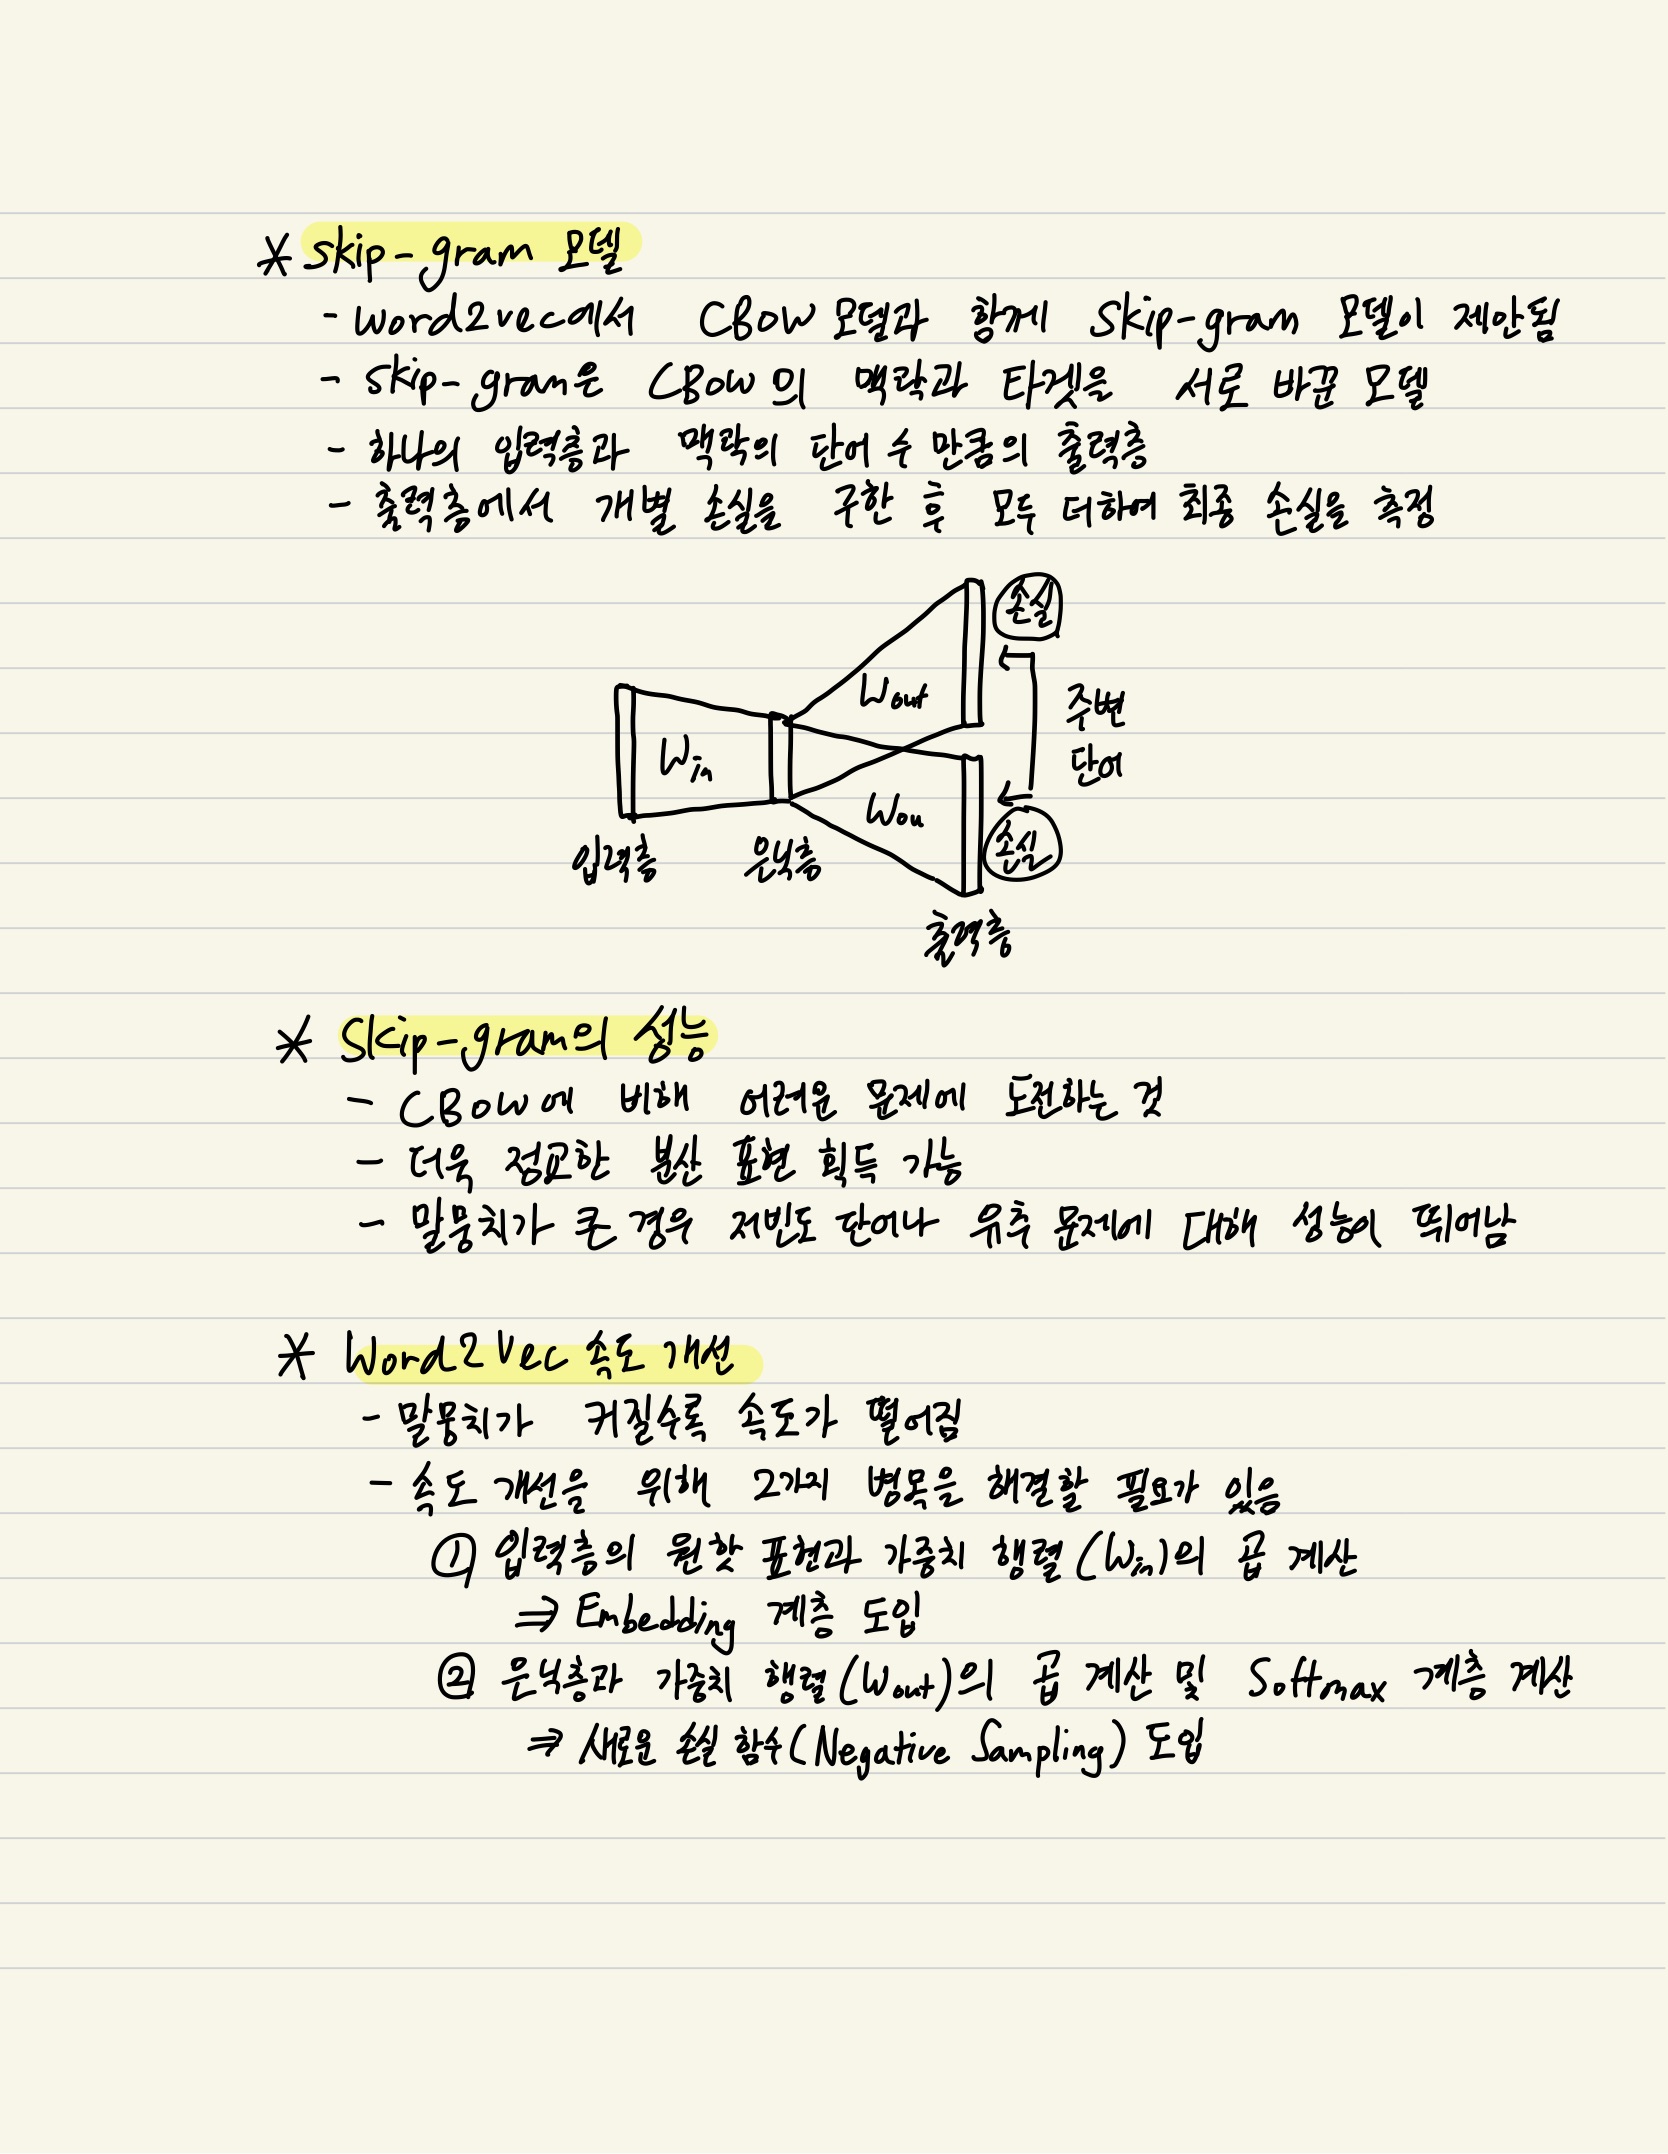 * skip-gram 모델
- word2vec에서 CBOW 모델과 함께 skip-gram 모델이 제안됨
- skip-gram은 CBOW의 맥락과 타겟을 서로 바꾼 모델
- 하나의 입력층과 맥락의 단어 수 만큼의 출력층
- 출력층에서 개별 손실을 구한 후 모두 더하여 최종 손실을 측정
손실
Wout
주변
단어
Win
Wou
손실
입력층
은닉층
출력층
* Skip-gram의 성능
- CBOW에 비해 어려운 문제에 도전하는 것
- 더욱 정교한 분산 표현 획득 가능
- 말뭉치가 큰 경우 저빈도 단어나 유추 문제에 대해 성능이 뛰어남
* Word2Vec 속도 개선
- 말뭉치가 커질수록 속도가 떨어짐
- 속도 개선을 위해 2가지 병목을 해결할 필요가 있음
① 입력층의 원핫 표현과 가중치 행렬(Win)의 곱 계산
⇒ Embedding 계층 도입
② 은닉층과 가중치 행렬(Wout)의 곱 계산 및 Softmax 계층 계산
⇒ 새로운 손실 함수(Negative Sampling) 도입